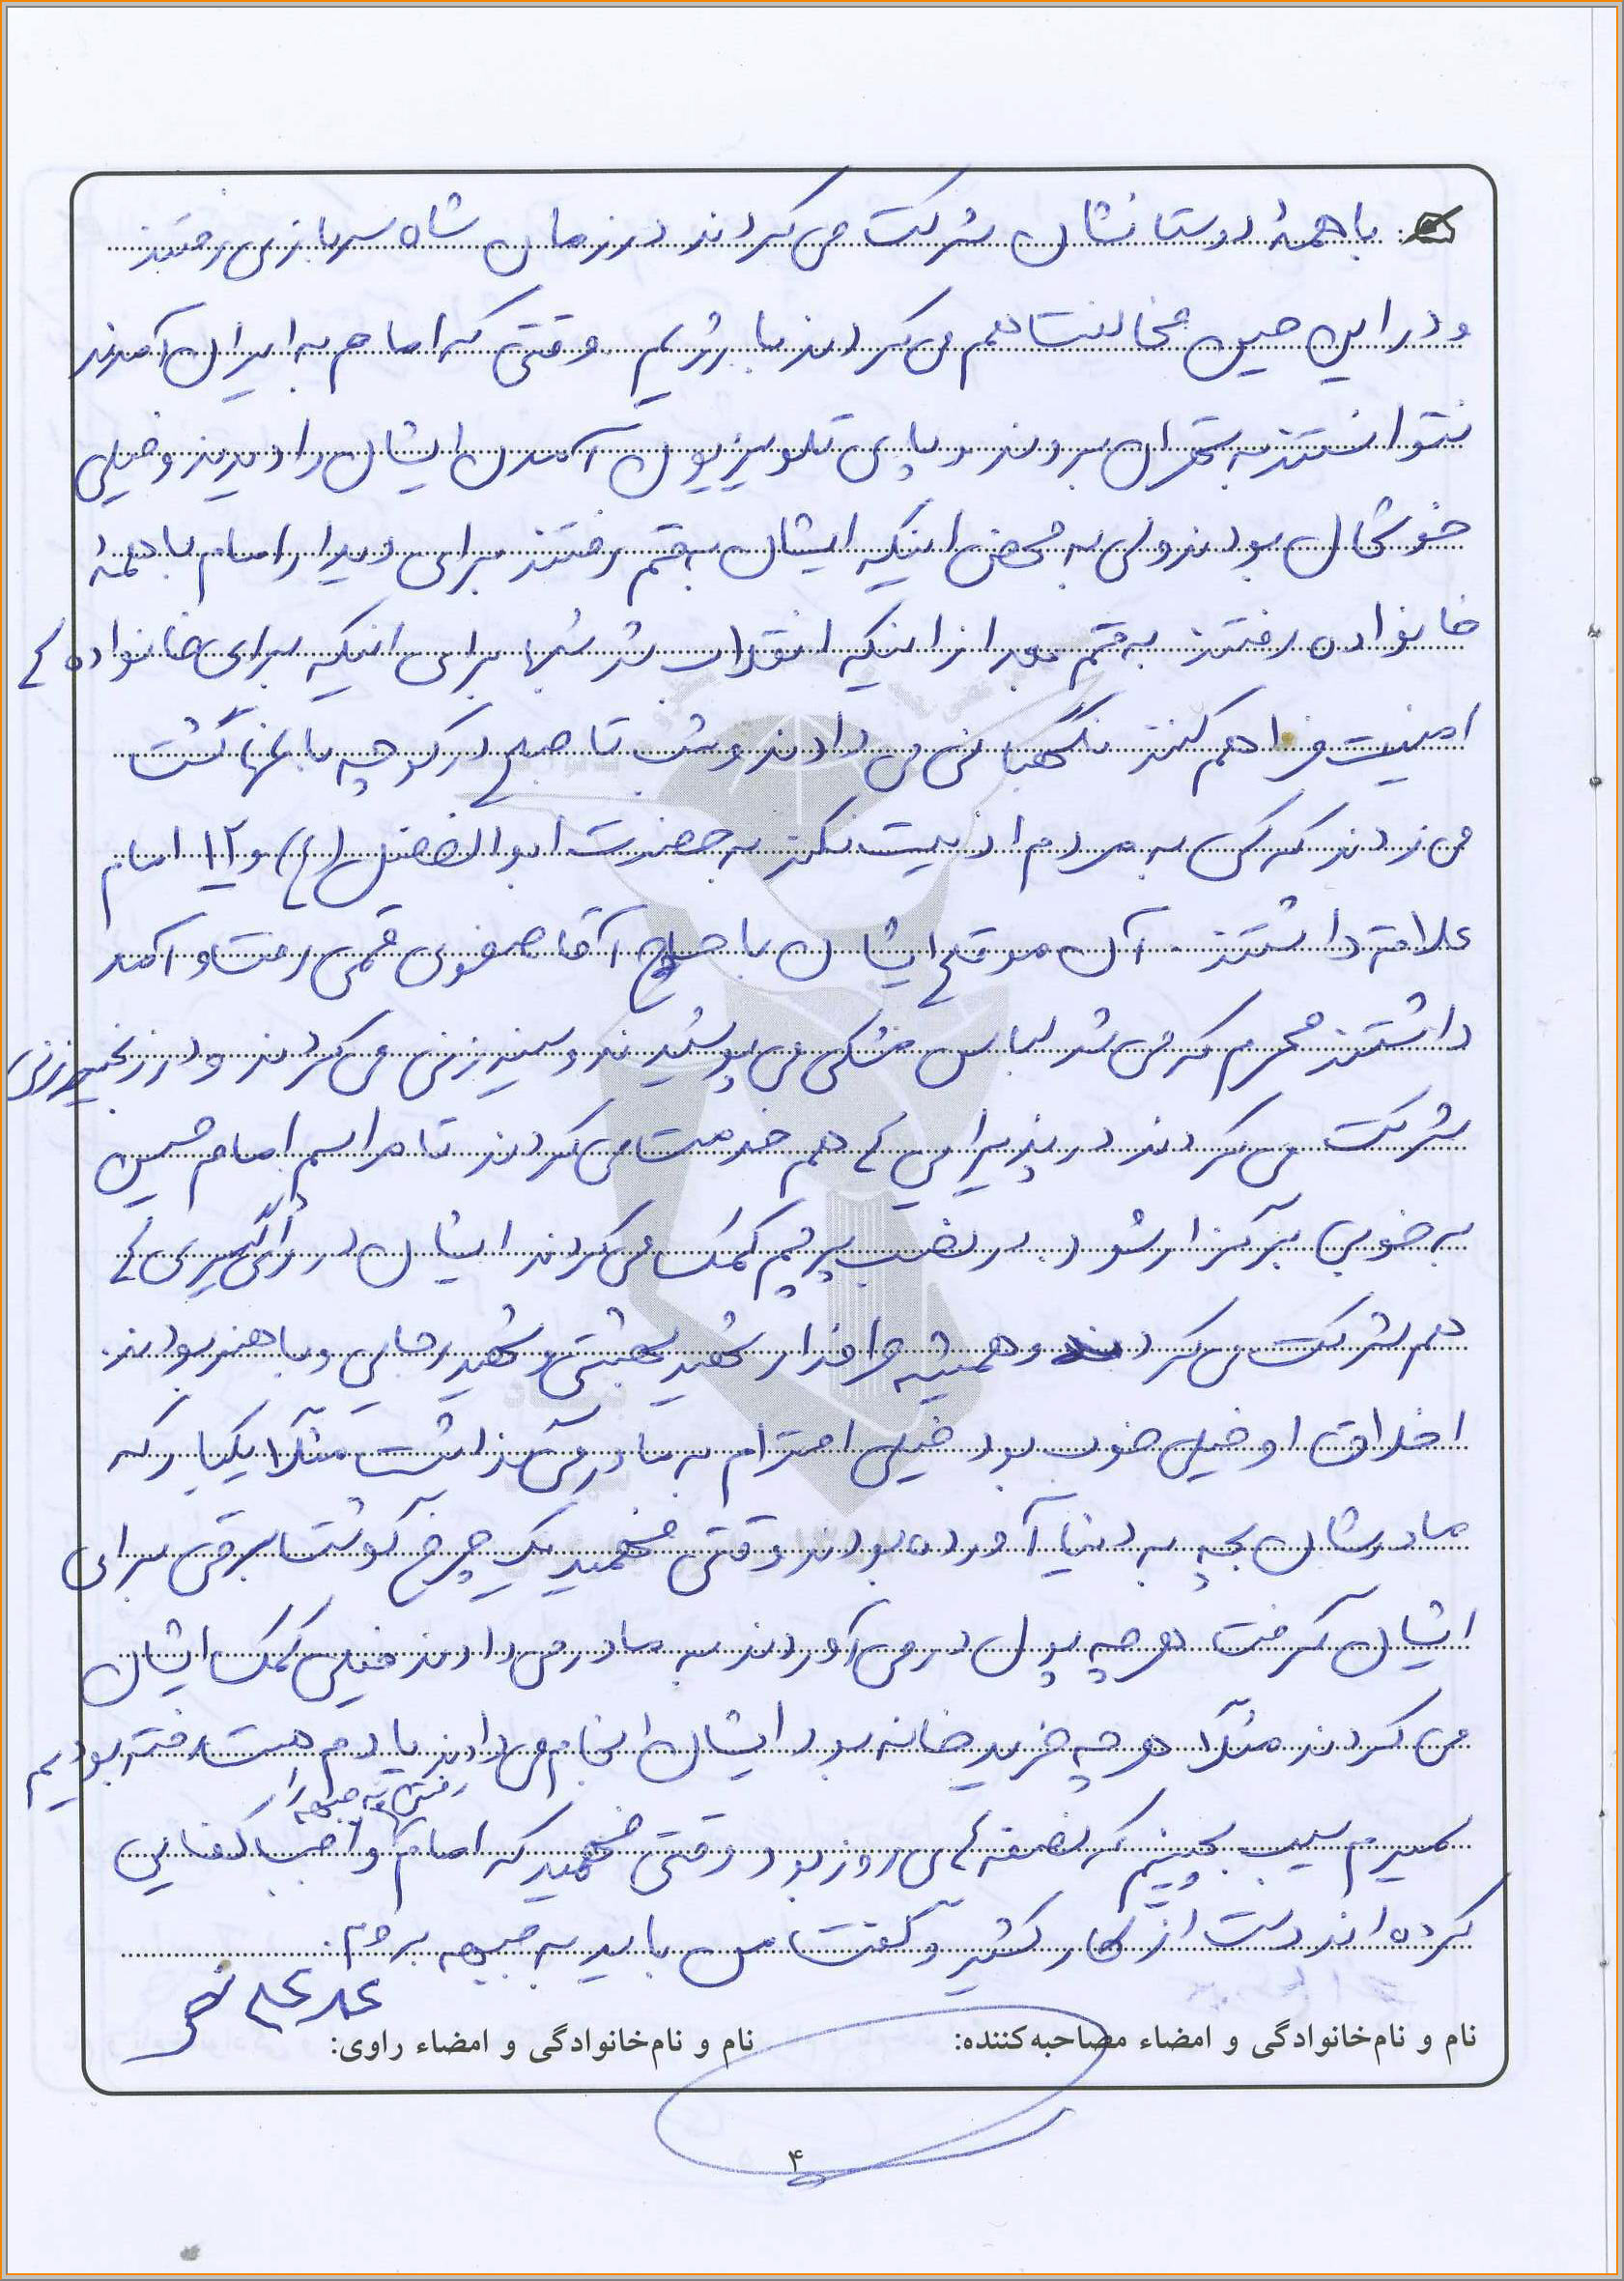 با همهٔ دوستانشان شرکت می‌کردند در زمان شاه سربازی رفتند
و در این حین مخالفت هم می‌کردند با رژیم. وقتی که امام به ایران آمدند
نتوانستند به تهران بروند و پای تلویزیون آمدن ایشان را دیدند و خیلی
خوشحال بودند ولی به محض اینکه ایشان به قم رفتند برای دیدار امام با همهٔ
خانواده رفتند به قم بعد از اینکه انقلاب شد شبها برای اینکه برای خانواده ها
امنیت فراهم کنند نگهبانی می دادند و شب تا صبح در کوچه باغها گشت
می زدند که کسی به مردم اذیت نکند به حضرت ابوالفضل (ع) و ۱۲ امام
علاقه داشتند. آن موقع ایشان با حاج آقا صفوی قمی رفت و آمد
داشتند محرم که می شد لباس مشکی می پوشیدند و سینه زنی می کردند و در زنجیرزنی
شرکت می کردند در پذیرایی ها هم خدمت می کردند تا مراسم امام حسین
به خوبی برگزار شود. در نصب پرچم کمک می کردند ایشان در رأی گیری ها
هم شرکت می کردند و همیشه طرفدار شهید بهشتی و شهید رجایی و باهنر بودند.
اخلاق او خیلی خوب بود خیلی احترام به مادر می گذاشت مثلاً یکبار که
مادرشان بچه به دنیا آورده بودند وقتی فهمید یک چرخ گوشت برقی برای
ایشان گرفت هر چه پول در می آوردند به مادر می دادند خیلی کمک ایشان
می کردند مثلاً هر چه خرید خانه بود ایشان انجام می دادند یادم هست رفته بودیم
رفتن به جبهه را
سیب بچینیم که نصفه های روز بود وقتی فهمید که امام واجب کفایی
کرده اند دست از کار کشید و گفت من باید به جبهه بروم.
نام و نام‌خانوادگی و امضاء مصاحبه‌کننده:
نام و نام‌خانوادگی و امضاء راوی:
۴